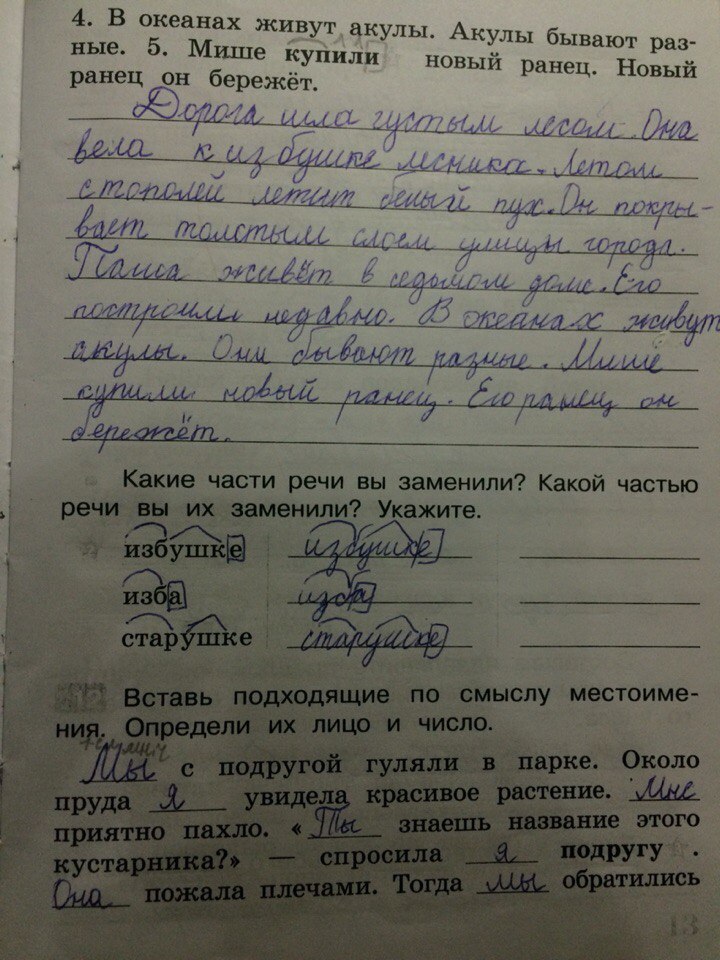 4. В океанах живут акулы. Акулы бывают раз-
ные. 5. Мише купили новый ранец. Новый
ранец он бережёт.
Дорога шла густым лесом. Она
вела к избушке лесника. Летом
с тополей летит белый пух. Он покры-
вает толстым слоем улицы города.
Паша живёт в седьмом доме. Его
построили недавно. В океанах живут
акулы. Они бывают разные. Мише
купили новый ранец. Его ранец он
бережёт.
Какие части речи вы заменили? Какой частью
речи вы их заменили? Укажите.
избушке избушке
изба изба
старушке старушке
Вставь подходящие по смыслу местоиме-
ния. Определи их лицо и число.
Мы с подругой гуляли в парке. Около
пруда я увидела красивое растение. Мне
приятно пахло. «Ты знаешь название этого
кустарника?» — спросила я подругу.
Она пожала плечами. Тогда мы обратились
13